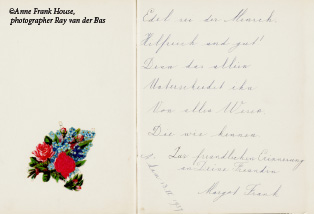 ©Anne Frank House,
photographer Ray van der Bas
Edel sei der Mensch
Hilfreich und gut!
Denn das allein
Unterscheidet ihn
Von allen Wesen
Die wir kennen
Zur freundlichen Erinnerung
an Deine Freundin
Margot Frank